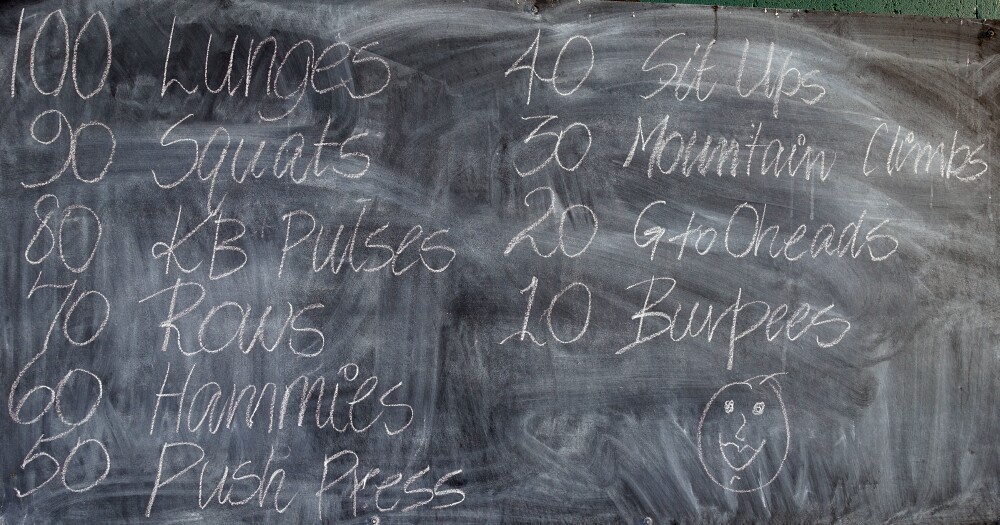 100 Lunges
90 Squats
80 KB Pulses
70 Rows
60 Hammies
50 Push Press
40 Sit Ups
30 Mountain Climbs
20 G to Oheads
10 Burpees